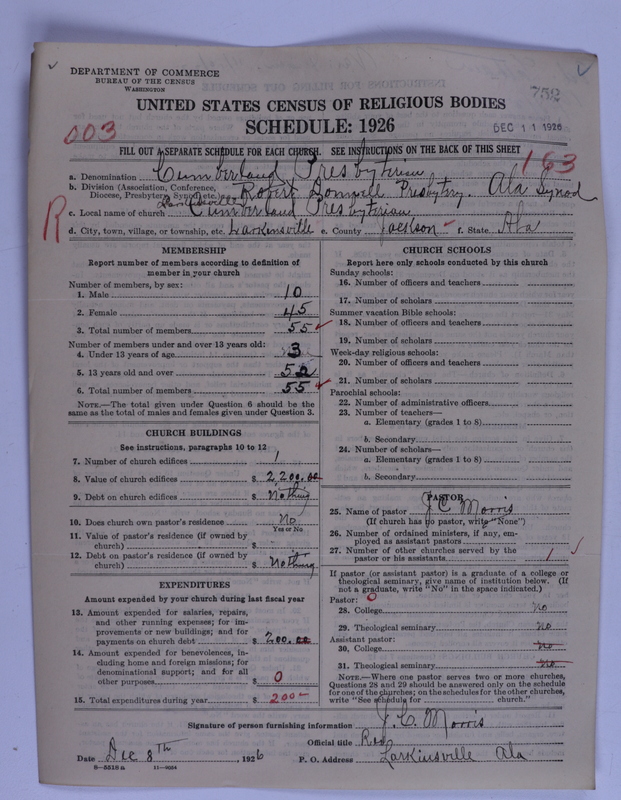 DEPARTMENT OF COMMERCE
BUREAU OF THE CENSUS
WASHINGTON
752
UNITED STATES CENSUS OF RELIGIOUS BODIES
SCHEDULE: 1926
DEC 11 1926
003
FILL OUT A SEPARATE SCHEDULE FOR EACH CHURCH. SEE INSTRUCTIONS ON THE BACK OF THIS SHEET
163
a. Denomination Cumberland Presbyterian
b. Division (Association, Conference, Diocese, Presbytery, Synod, etc.) Robert Donnell Presbytry. Ala Synod
Larkinsville
c. Local name of church Cumberland Presbyterian
R
d. City, town, village, or township, etc. Larkinsville e. County Jackson f. State Ala
MEMBERSHIP
Report number of members according to definition of member in your church
Number of members, by sex:
1. Male 10
2. Female 45
3. Total number of members 55
Number of members under and over 13 years old:
4. Under 13 years of age 3
5. 13 years old and over 52
6. Total number of members 55
NOTE.—The total given under Question 6 should be the same as the total of males and females given under Question 3.
CHURCH BUILDINGS
See instructions, paragraphs 10 to 12
7. Number of church edifices 1
8. Value of church edifices $ 2,200.00
9. Debt on church edifices $ Nothing
10. Does church own pastor's residence No
Yes or No
11. Value of pastor's residence (if owned by church) $
12. Debt on pastor's residence (if owned by church) $ Nothing
EXPENDITURES
Amount expended by your church during last fiscal year
13. Amount expended for salaries, repairs, and other running expenses; for improvements or new buildings; and for payments on church debt $ 200.00
14. Amount expended for benevolences, including home and foreign missions; for denominational support; and for all other purposes $ 0
15. Total expenditures during year $ 200
CHURCH SCHOOLS
Report here only schools conducted by this church
Sunday schools:
16. Number of officers and teachers
17. Number of scholars
Summer vacation Bible schools:
18. Number of officers and teachers
19. Number of scholars
Week-day religious schools:
20. Number of officers and teachers
21. Number of scholars
Parochial schools:
22. Number of administrative officers
23. Number of teachers—
a. Elementary (grades 1 to 8)
b. Secondary
24. Number of scholars—
a. Elementary (grades 1 to 8)
b. Secondary
PASTOR
25. Name of pastor J C Morris
(If church has no pastor, write "None")
26. Number of ordained ministers, if any, employed as assistant pastors
27. Number of other churches served by the pastor or his assistants 1
If pastor (or assistant pastor) is a graduate of a college or theological seminary, give name of institution below. (If not a graduate, write "No" in the space indicated.)
Pastor: 0
28. College No
29. Theological seminary No
Assistant pastor:
30. College No
31. Theological seminary No
NOTE.—Where one pastor serves two or more churches, Questions 28 and 29 should be answered only on the schedule for one of the churches; on the schedules for the other churches, write "See schedule for church."
Signature of person furnishing information J. C. Morris
Official title Rev
Date Dec 8th, 1926 P. O. Address Larkinsville Ala
8—5518a 11—9034